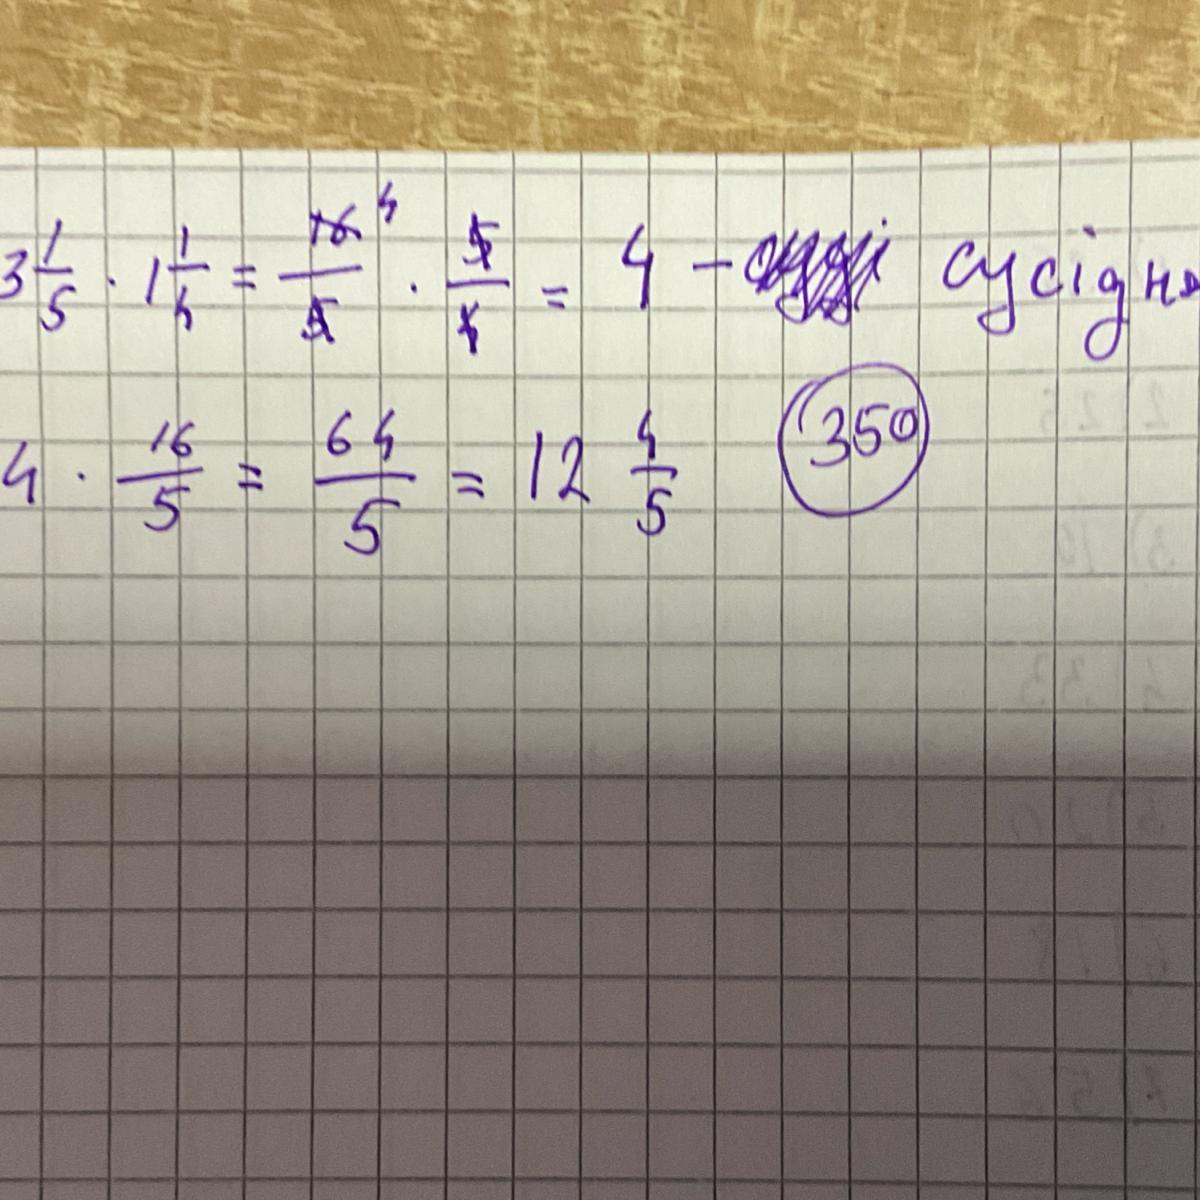 3 1/5 · 1 1/4 = 16/5 4 · 5/4 = 4 – сусідня
4 · 16/5 = 64/5 = 12 4/5 350